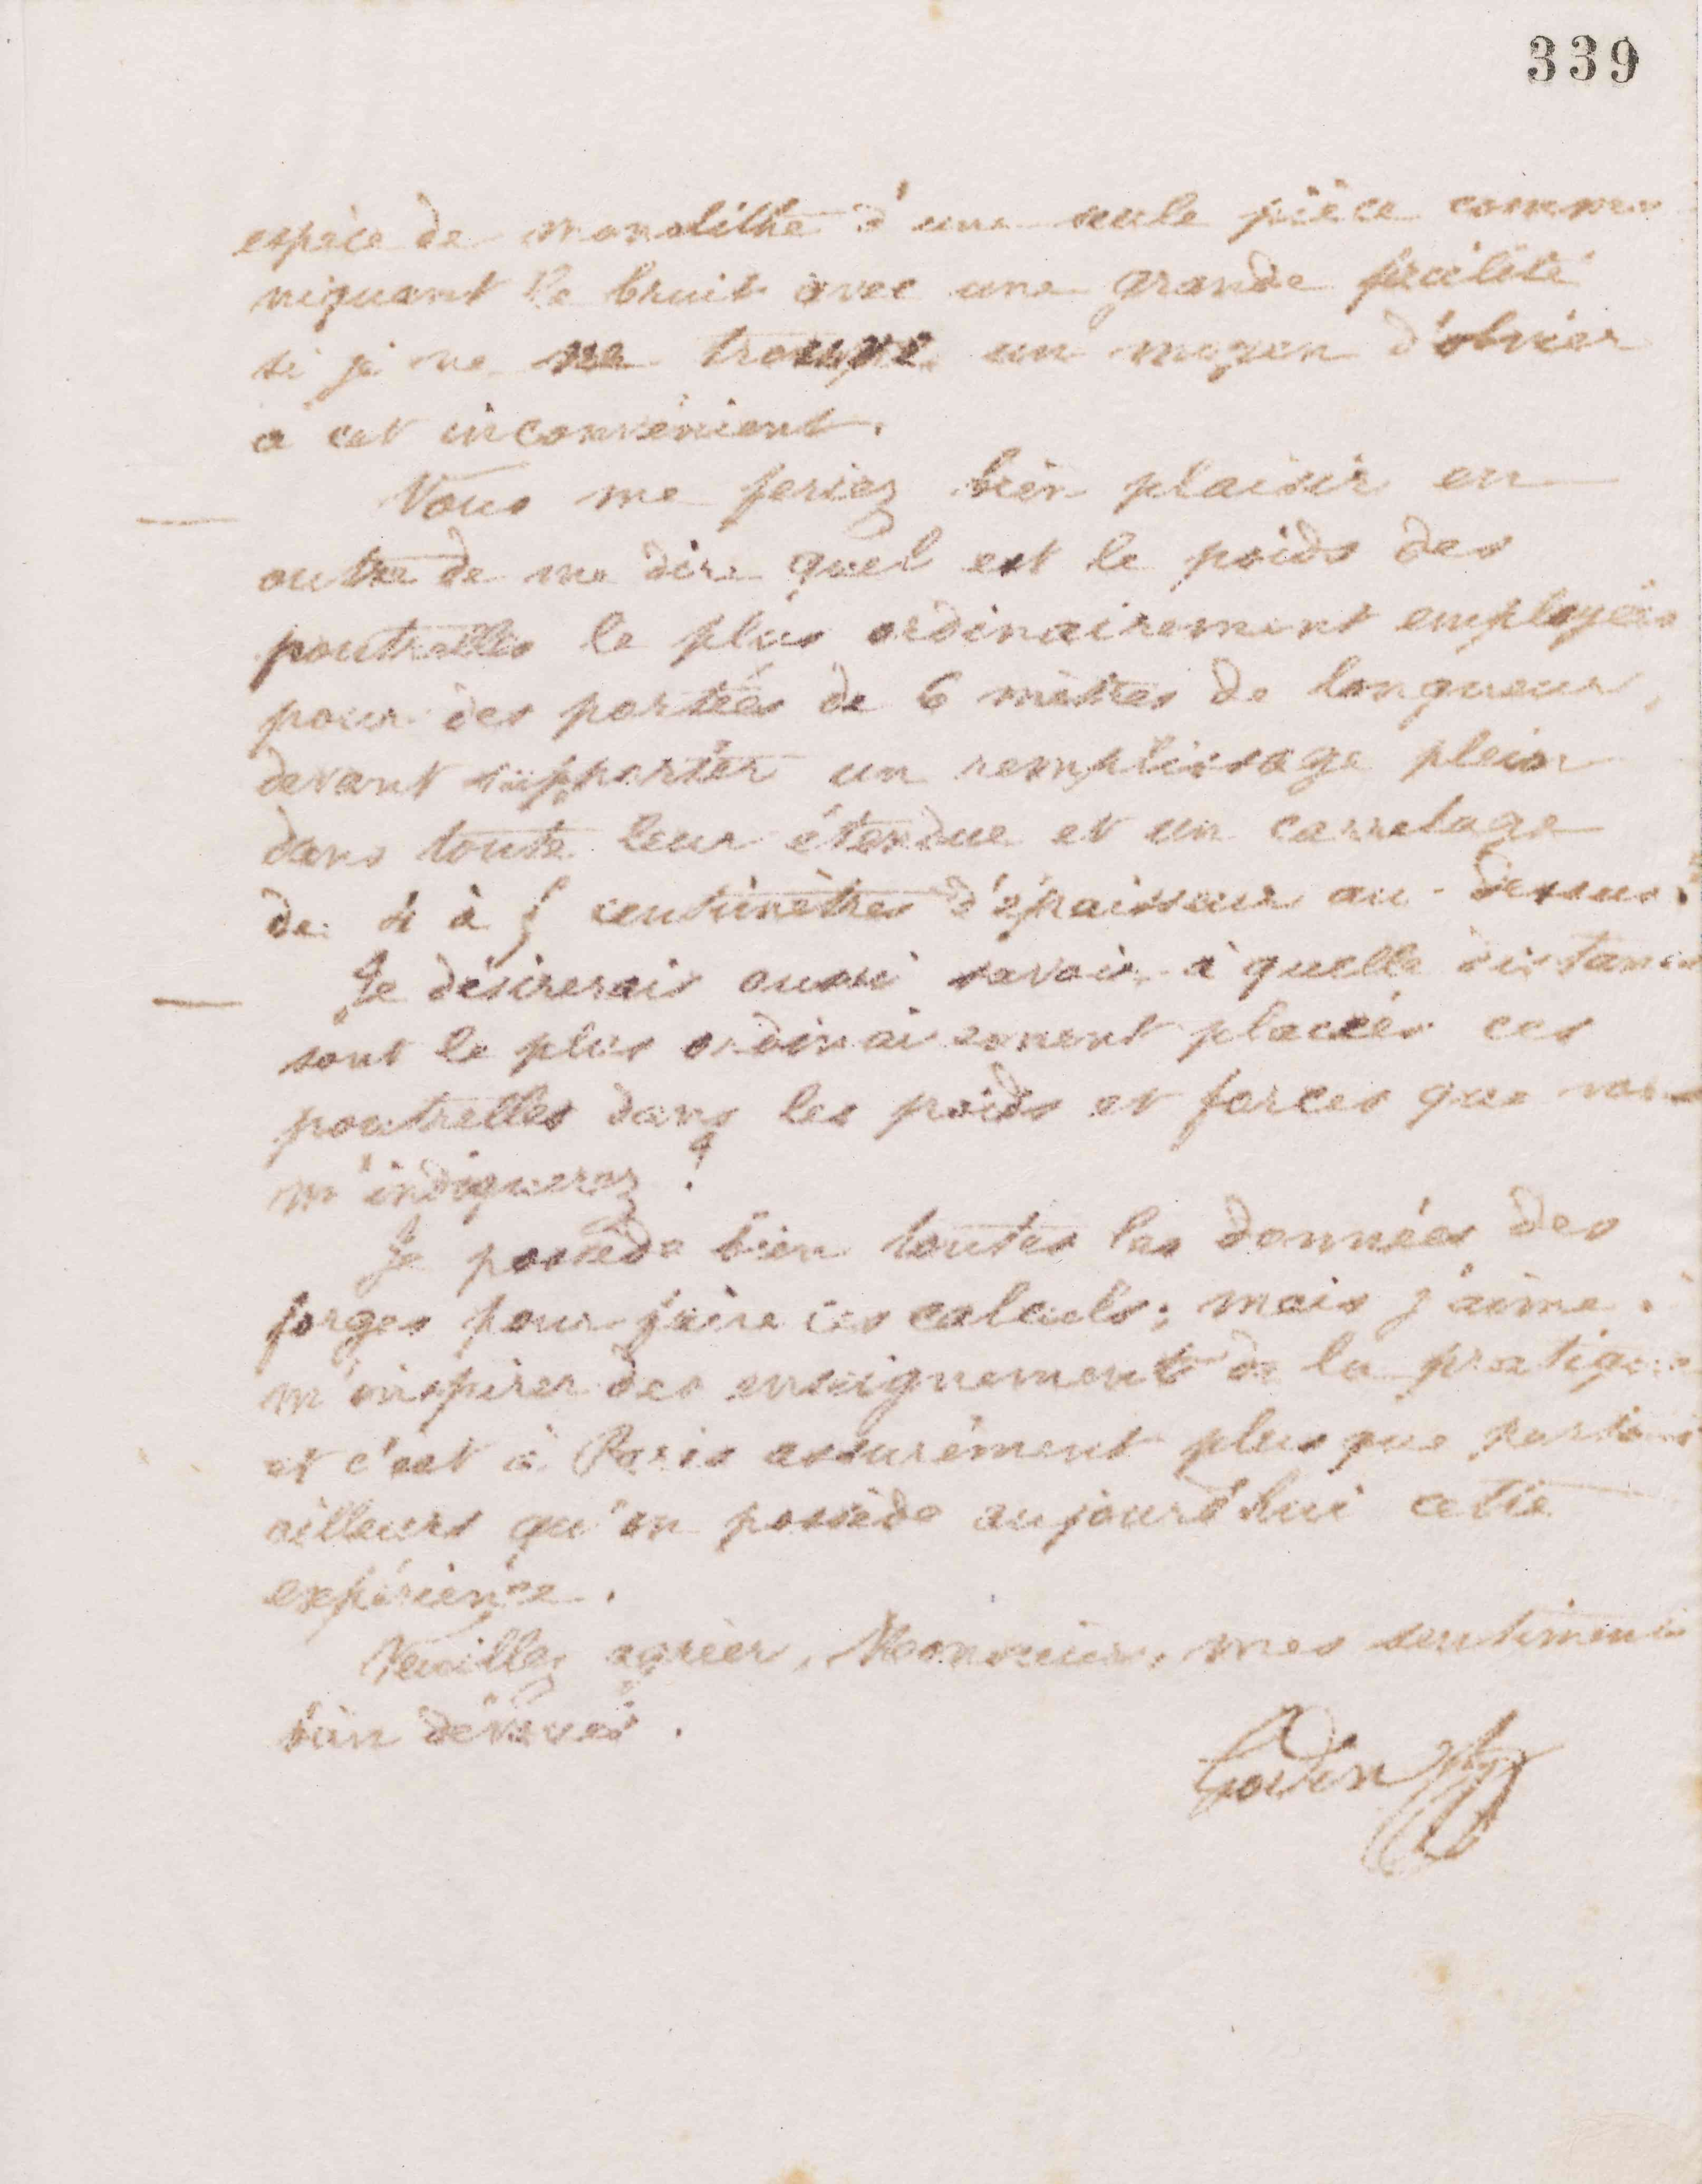 339
espèce de monolithe d'une seule pièce commu
niquant le bruit avec une grande facilité
si je ne me trompe un moyen d'obvier
à cet inconvénient.
Vous me feriez bien plaisir en
outre de me dire quel est le poids des
poutrelles le plus ordinairement employées
pour des portées de 6 mètres de longueur,
devant supporter un remplissage plein
dans toute leur étendue et un carrelage
de 4 à 5 centimètres d'épaisseur au-dessus.
Je désirerais aussi savoir à quelle distance
sont le plus ordinairement placées ces
poutrelles dans les poids et forces que vous
m'indiquerez ?
Je possède bien toutes les données des
forges pour faire ces calculs; mais j'aime à
m'inspirer des enseignements de la pratique
et c'est à Paris assurément plus que partout
ailleurs qu'on possède aujourd'hui cette
expérience.
Veuillez agréer, Monsieur, mes sentiments
bien dévoués.
Godin